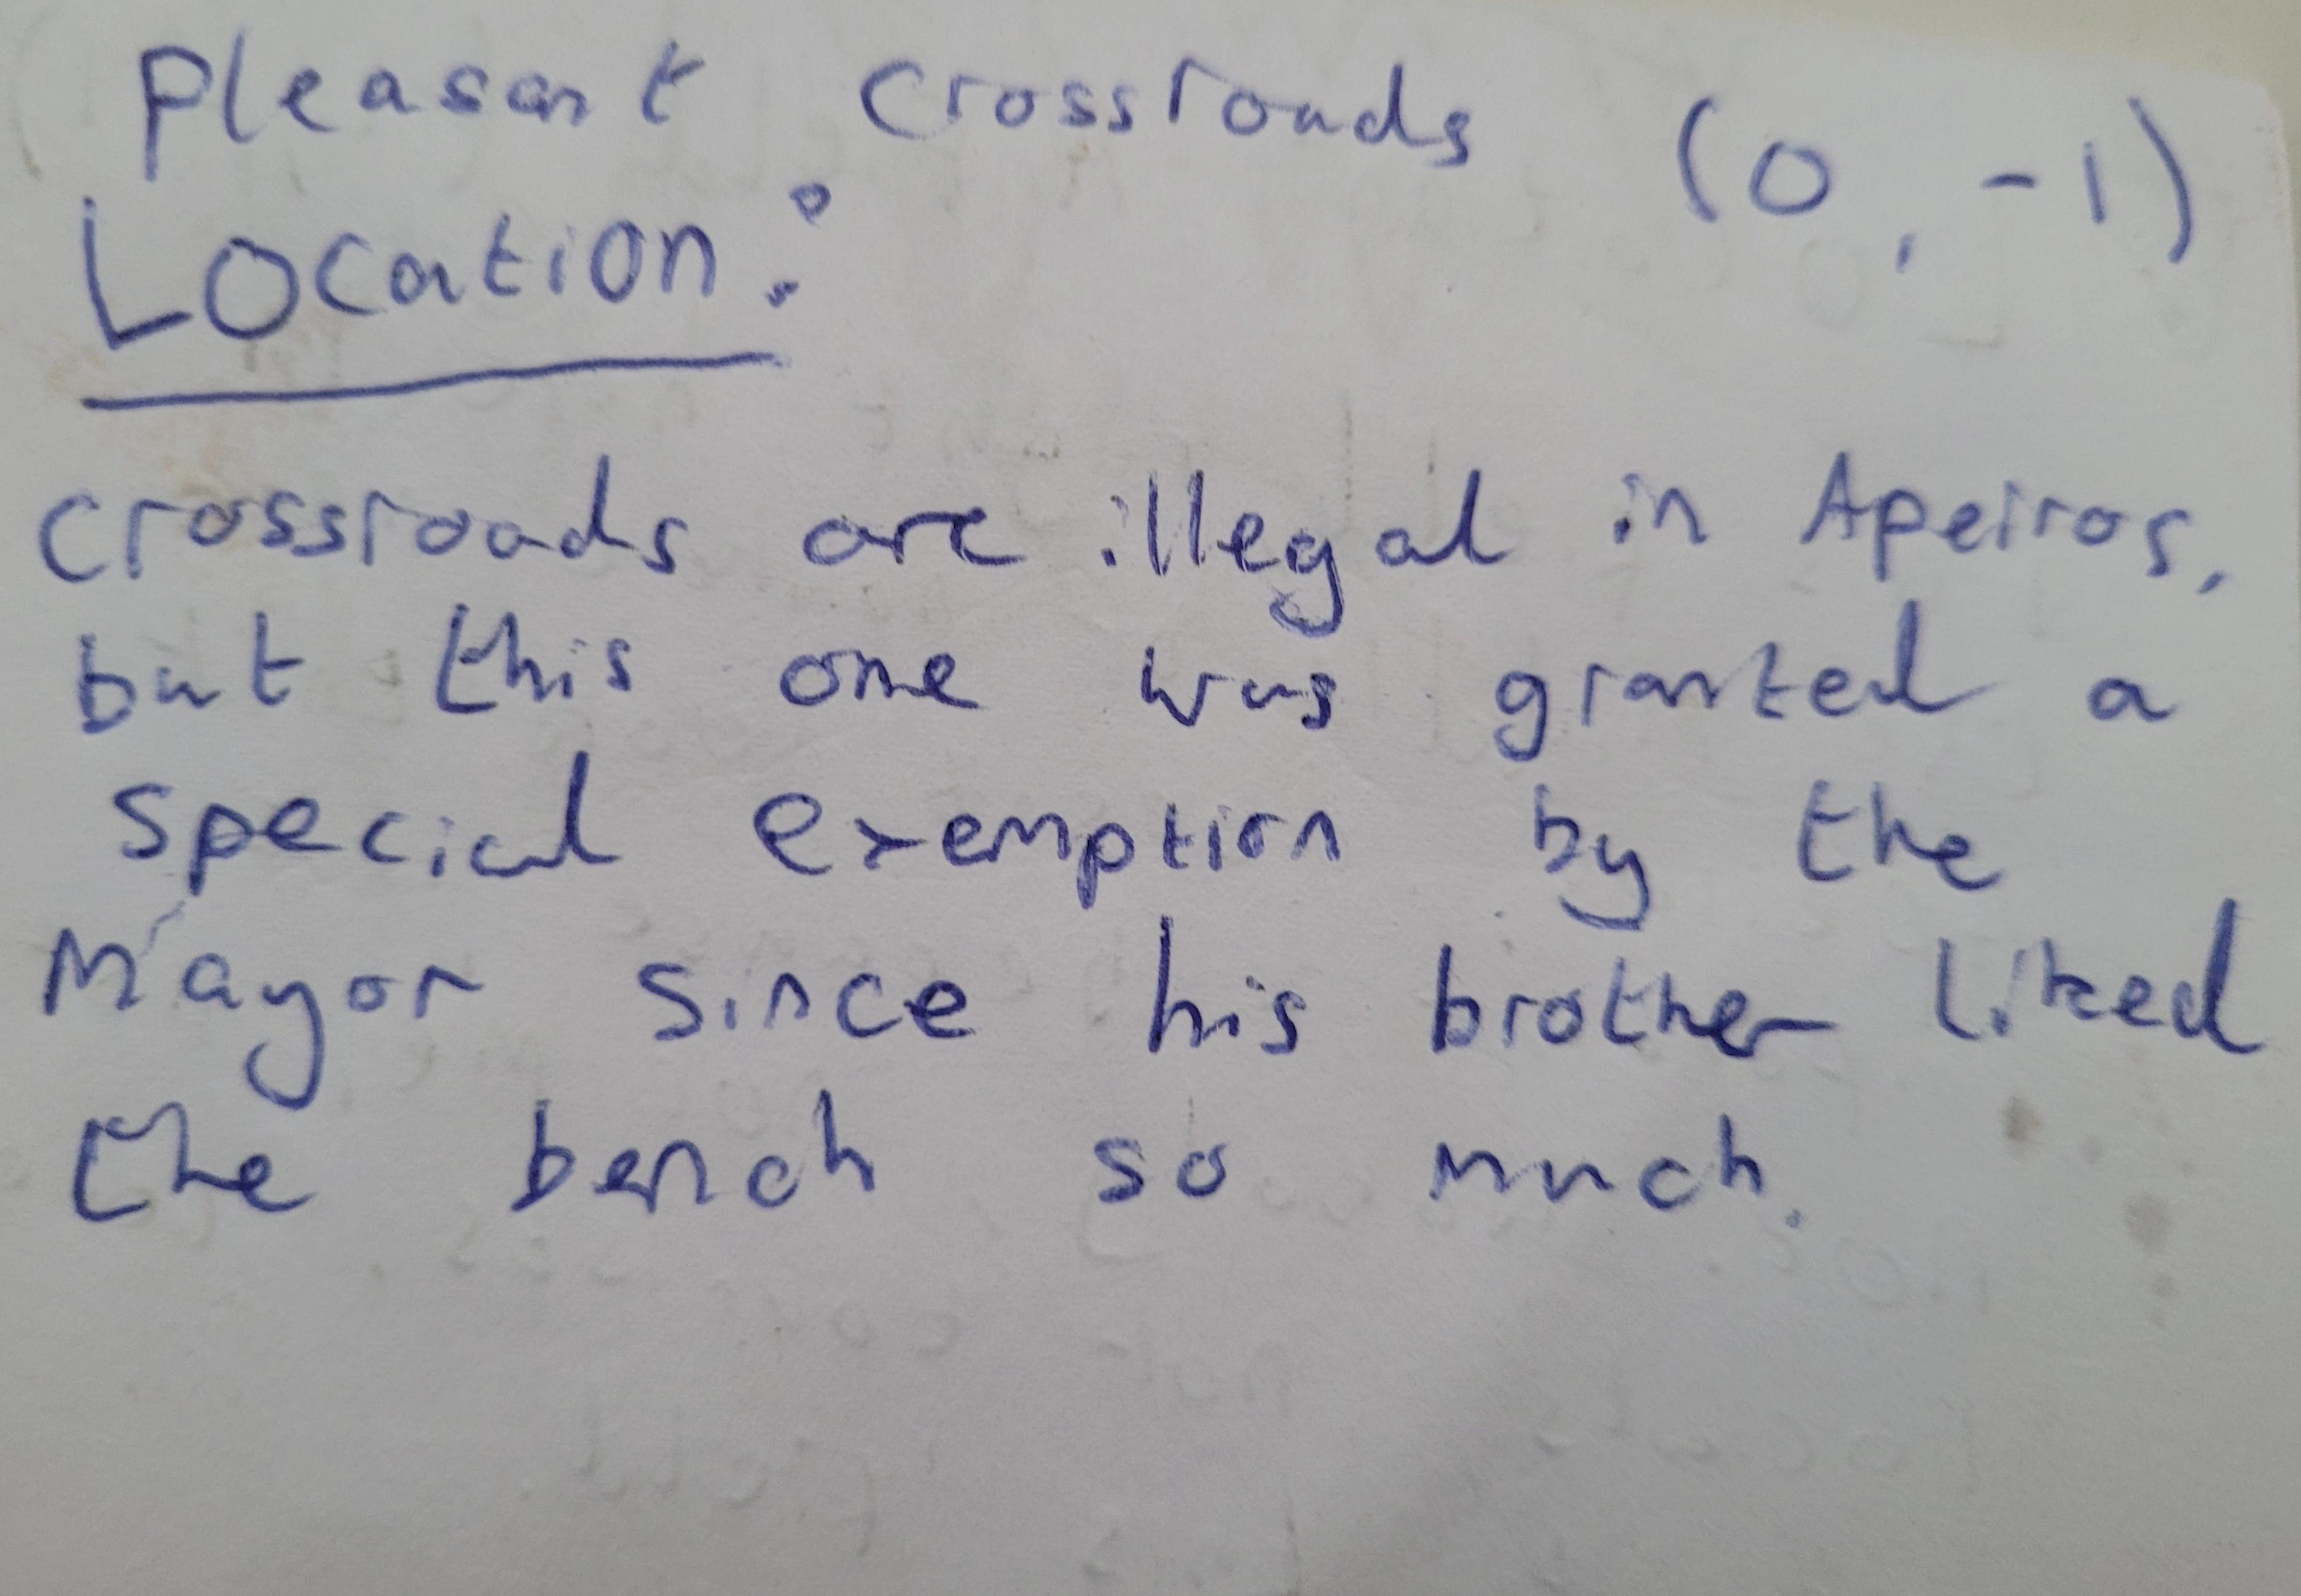 Pleasant Crossroads (0, -1)
Location:
Crossroads are illegal in Apeiros,
but this one was granted a
special exemption by the
Mayor since his brother liked
the bench so much.